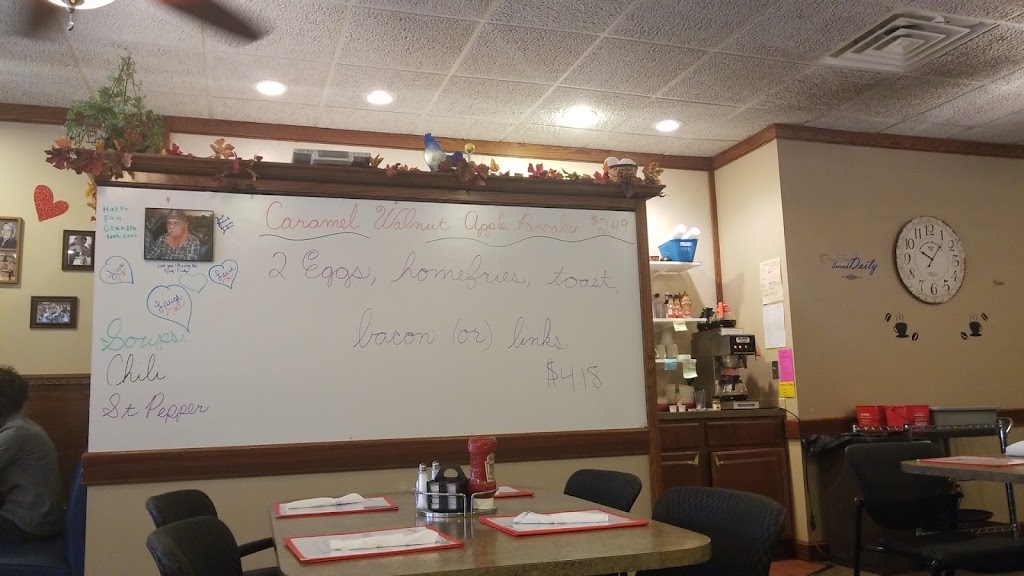 Caramel Walnut Apple Pancake $2.99
2 Eggs, homefries, toast,
bacon (or) links
$4.18
HAPPY
Fall
Grandpa
Soups:
Chili
St Pepper
Daily